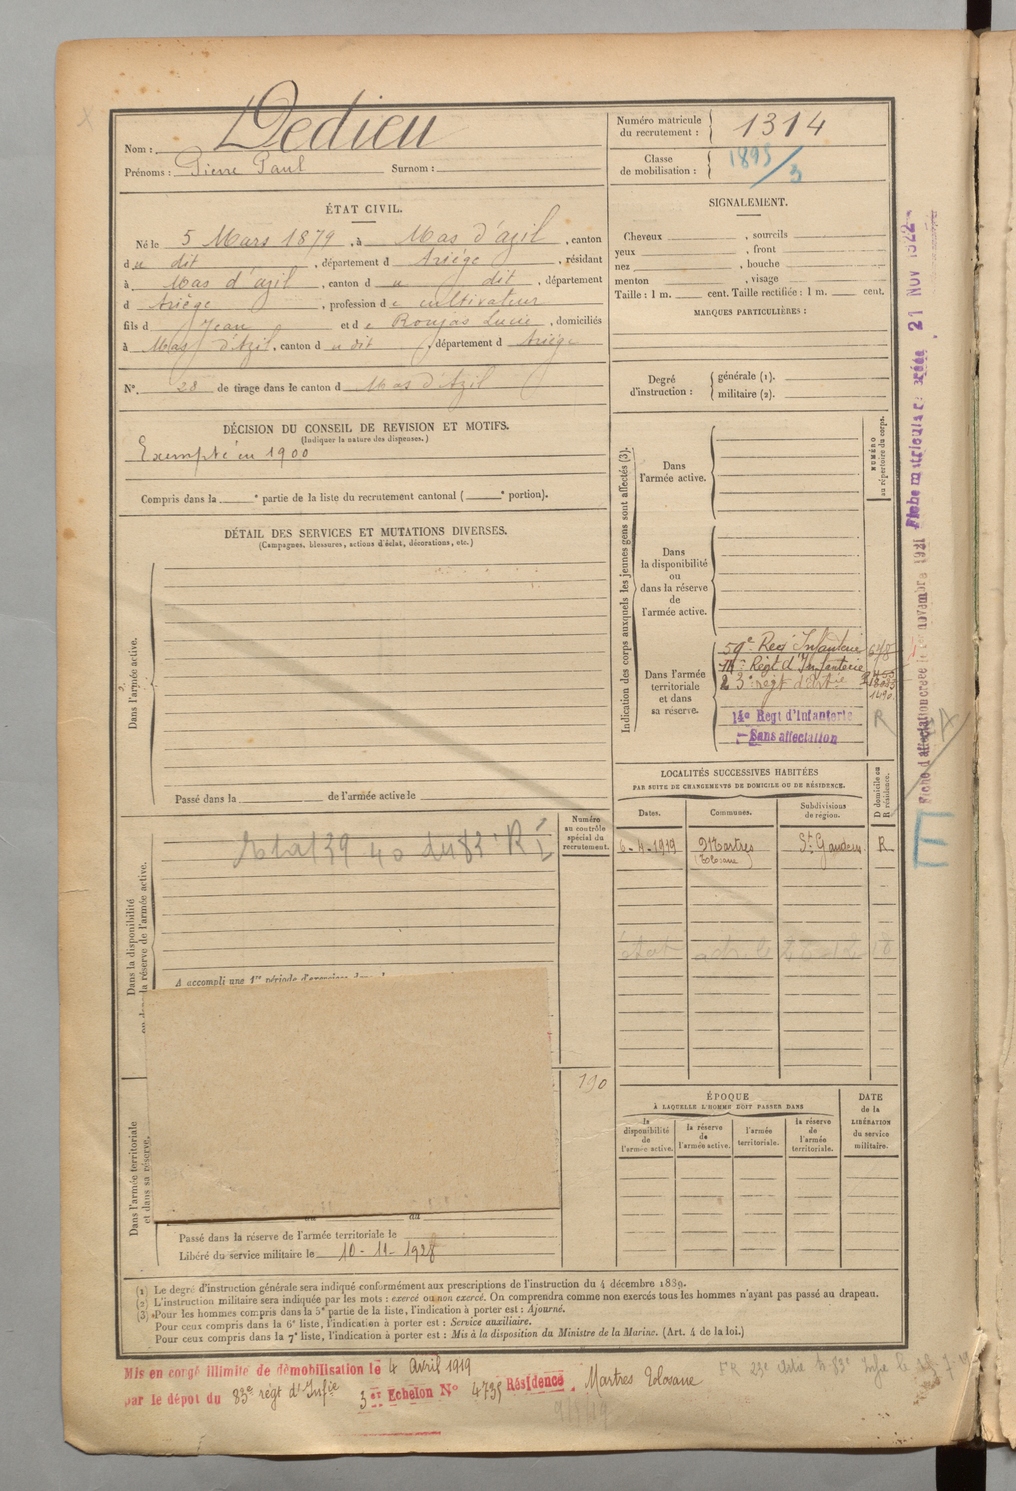 Nom : Dedieu
Prénoms : Pierre Paul Surnom :
Numéro matricule du recrutement : 1314
Classe de mobilisation : 1895/3
ÉTAT CIVIL.
Né le 5 Mars 1879, à Mas d'azil, canton
du dit, département d Ariège, résidant
à Mas d'azil, canton du dit, département
d Ariège, profession de cultivateur
fils d Jean et de Roujas Lucie, domiciliés
à Mas d'Azil, canton du dit, département d Ariège
N° 28 de tirage dans le canton d Mas d'Azil
SIGNALEMENT.
Cheveux , sourcils
yeux , front
nez , bouche
menton , visage
Taille : 1 m. cent. Taille rectifiée : 1 m. cent.
MARQUES PARTICULIÈRES :
Degré d'instruction : générale (1).
militaire (2).
DÉCISION DU CONSEIL DE REVISION ET MOTIFS.
(Indiquer la nature des dispenses.)
Exempté en 1900
Compris dans la e partie de la liste du recrutement cantonal ( e portion).
DÉTAIL DES SERVICES ET MUTATIONS DIVERSES.
(Campagnes, blessures, actions d'éclat, décorations, etc.)
Dans l'armée active.
Passé dans la de l'armée active le
Numéro
au contrôle
spécial du
recrutement.
Dans la disponibilité
ou dans la réserve de l'armée active.
A accompli une 1re période d'exercices
190
Dans l'armée territoriale
et dans sa réserve.
du
Passé dans la réserve de l'armée territoriale le
Libéré du service militaire le 10-11-1928
Indication des corps auxquels les jeunes gens sont affectés (3).
NUMÉRO
au répertoire du corps.
Dans
l'armée active.
Dans
la disponibilité
ou
dans la réserve
de
l'armée active.
Dans l'armée
territoriale
et dans
sa réserve.
59e Reg Infanterie
14e Régt d'Infanterie
23e régt d'Artie
14e Regt d'Infanterie
Sans affectation
R
LOCALITÉS SUCCESSIVES HABITÉES
PAR SUITE DE CHANGEMENTS DE DOMICILE OU DE RÉSIDENCE.
Dates. Communes. Subdivisions de région. D domicile ou R résidence.
6-4-1919 Martres Tolosane St Gaudens R
ÉPOQUE
À LAQUELLE L'HOMME DOIT PASSER DANS
la disponibilité de l'armée active.
la réserve de l'armée active.
l'armée territoriale.
la réserve de l'armée territoriale.
DATE de la LIBÉRATION du service militaire.
(1) Le degré d'instruction générale sera indiqué conformément aux prescriptions de l'instruction du 4 décembre 1889.
(2) L'instruction militaire sera indiquée par les mots : exercé ou non exercé. On comprendra comme non exercés tous les hommes n'ayant pas passé au drapeau.
(3) Pour les hommes compris dans la 5e partie de la liste, l'indication à porter est : Ajourné.
Pour ceux compris dans la 6e liste, l'indication à porter est : Service auxiliaire.
Pour ceux compris dans la 7e liste, l'indication à porter est : Mis à la disposition du Ministre de la Marine. (Art. 4 de la loi.)
Mis en congé illimité de démobilisation le 4 Avril 1919
par le dépôt du 83e régt d'Infie 3er Echelon N° 4735 Résidence Martres Tolosane
Fiche matricule créée 21 NOV 1922
Fiche d'affectation créée le novembre 1921
E